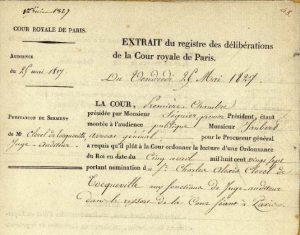 1er Juin 1827
COUR ROYALE DE PARIS.
AUDIENCE
du 25 mai 1827
PRESTATION DE SERMENT
de Mr Clerel de Tocqueville
Juge-Auditeur
EXTRAIT du registre des délibérations
de la Cour royale de Paris.
Du Vendredi 25 Mai 1827.
LA COUR, Première Chambre
présidée par Monsieur Séguier premier Président, étant
montée à l'audience publique Monsieur Jaubert
avocat général pour le Procureur général
a requis qu'il plût à la Cour ordonner la lecture d'une Ordonnance
du Roi en date du Cinq avril mil huit cent vingt sept
portant nomination de Sr. Charles Alexis Clerel de
Tocqueville aux fonctions de Juge-auditeur
dans le ressort de la Cour séant à Paris